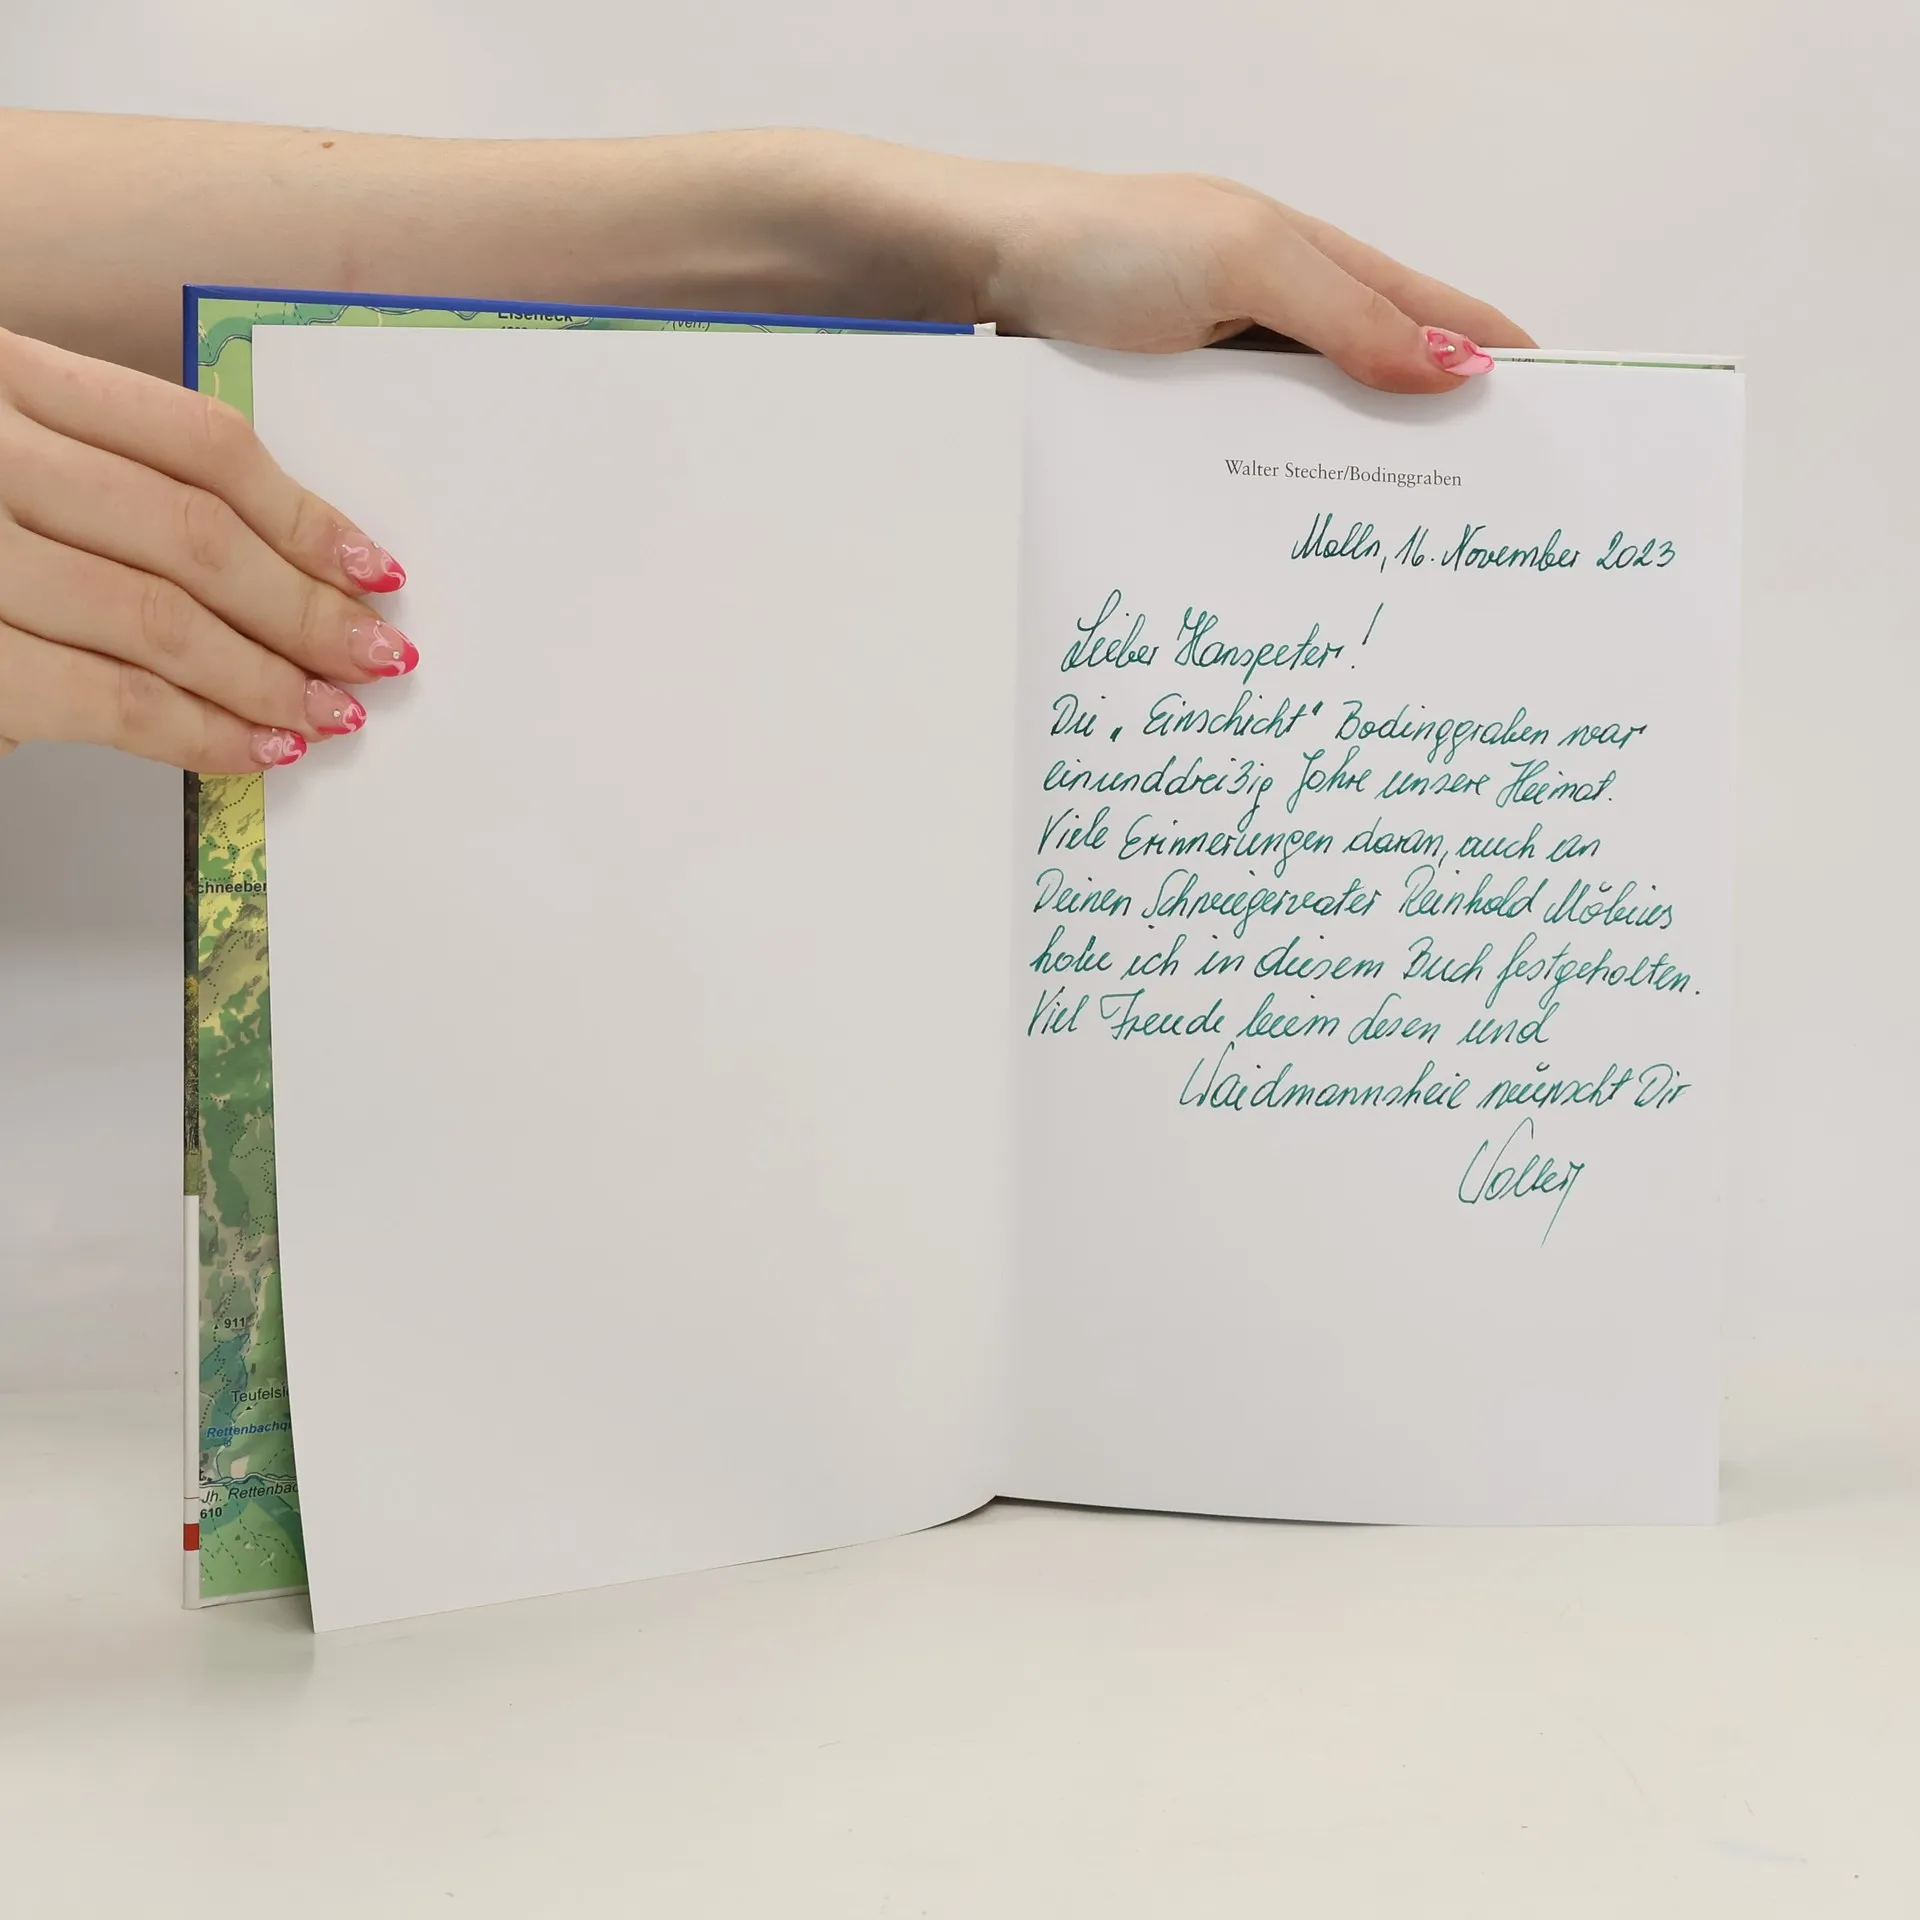 Eiserleck
(verf.)
Walter Stecher/Bodinggraben
Molln, 16. November 2023
Lieber Hanspeter!
Die „Einschicht" Bodinggraben war
einunddreißig Jahre unsere Heimat.
Viele Erinnerungen daran, auch an
Deinen Schwiegervater Reinhold Möbius
habe ich in diesem Buch festgehalten.
Viel Freude beim Lesen und
Waidmannsheil wünscht Dir
chneeber
911
Teufelsl
Rettenbachq
Jh. Rettenbac
610